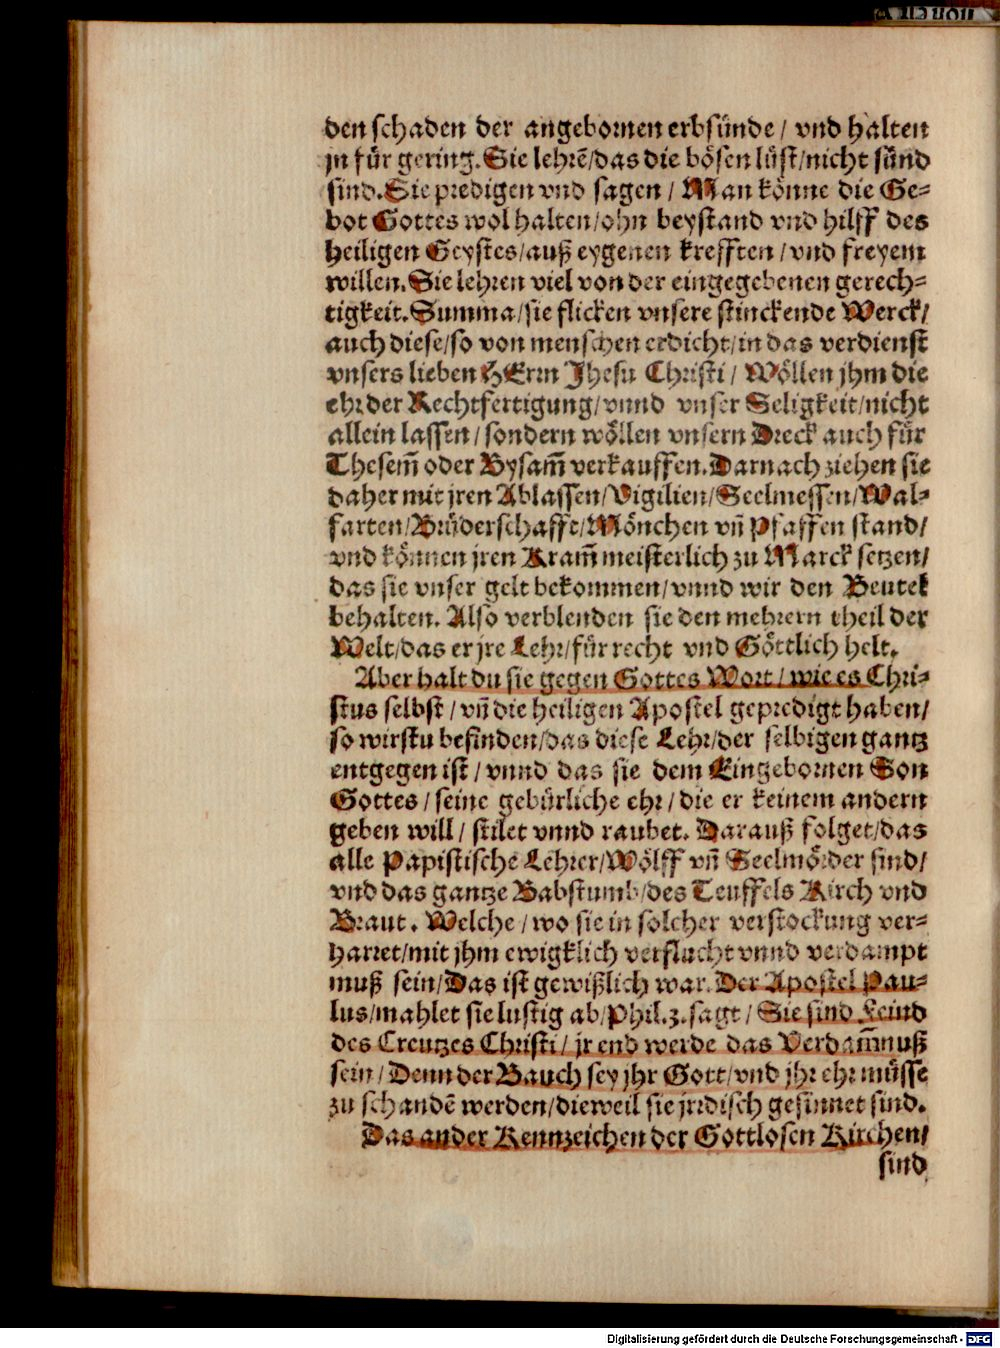 den schaden der angebornen erbsünde / vnd halten
jn für gering. Sie lehrē/das die bösen lüst/nicht sünd
sind. Sie predigen vnd sagen / Man könne die Ge-
bot Gottes wol halten/ohn beystand vnd hilff des
heiligen Geystes/auß eygenen krefften / vnd freyem
willen. Sie lehren viel von der eingegebenen gerech-
tigkeit. Summa/sie flicken vnsere stinckende Werck/
auch diese/so von menschen erdicht/in das verdienst
vnsers lieben HErrn Jhesu Christi / Wöllen jhm die
ehr der Rechtfertigung/vnnd vnser Seligkeit/nicht
allein lassen / sondern wöllen vnsern Dreck auch für
Thesem̄ oder Bysam̄ verkauffen. Darnach ziehen sie
daher mit jren Ablassen/Vigilien/Seelmessen/Wal-
farten/Brüderschafft/Mönchen vn̄ Pfaffen stand/
vnd können jren Kram̄ meisterlich zu Marck setzen/
das sie vnser gelt bekommen/vnnd wir den Beutel
behalten. Also verblenden sie den mehrern theil der
Welt/das er jre Lehr/für recht vnd Göttlich helt.
Aber halt du sie gegen Gottes Wort / wie es Chri-
stus selbst / vn̄ die heiligen Apostel gepredigt haben/
so wirstu befinden/das diese Lehr/der selbigen gantz
entgegen ist / vnnd das sie dem Eingebornen Son
Gottes / seine gebürliche ehr / die er keinem andern
geben will / stilet vnnd raubet. Darauß folget/das
alle Papistische Lehrer/Wölff vn̄ Seelmörder sind/
vnd das gantze Babstumb/des Teuffels Kirch vnd
Braut. Welche / wo sie in solcher verstockung ver-
harret/mit jhm ewigklich verflucht vnnd verdampt
muß sein/Das ist gewißlich war. Der Apostel Pau-
lus/mahlet sie lustig ab/Phil.3. sagt / Sie sind Feind
des Creutzes Christi / jr end werde das Verdam̄nuß
sein / Denn der Bauch sey jhr Gott/vnd jhr ehr müsse
zu schandē werden/dieweil sie jrrdisch gesinnet sind.
Das ander Kennzeichen der Gottlosen Kirchen/
sind
Digitalisierung gefördert durch die Deutsche Forschungsgemeinschaft - DFG